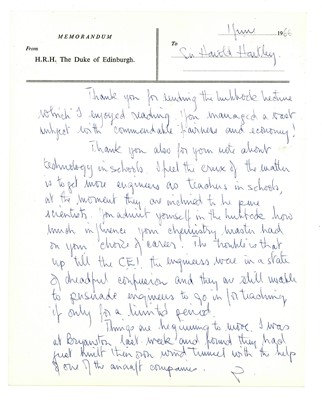 MEMORANDUM
From
H.R.H. The Duke of Edinburgh.
1 June 1966
To
Sir Harold Hartley
Thank you for sending the Lubbock lecture
which I enjoyed reading. You managed a vast
subject with commendable fairness and economy!
Thank you also for your note about
technology in schools. I feel the crux of the matter
is to get more engineers as teachers in schools,
at the moment they are inclined to be pure
scientists. You admit yourself in the Lubbock how
much influence your chemistry master had
on your choice of career. The trouble is that
up till the CEI the engineers were in a state
of dreadful confusion and they are still unable
to persuade engineers to go in for teaching
if only for a limited period.
Things are beginning to move. I was
at Bryanston last week and found they had
just built their own wind tunnel with the help
of one of the aircraft companies.
P